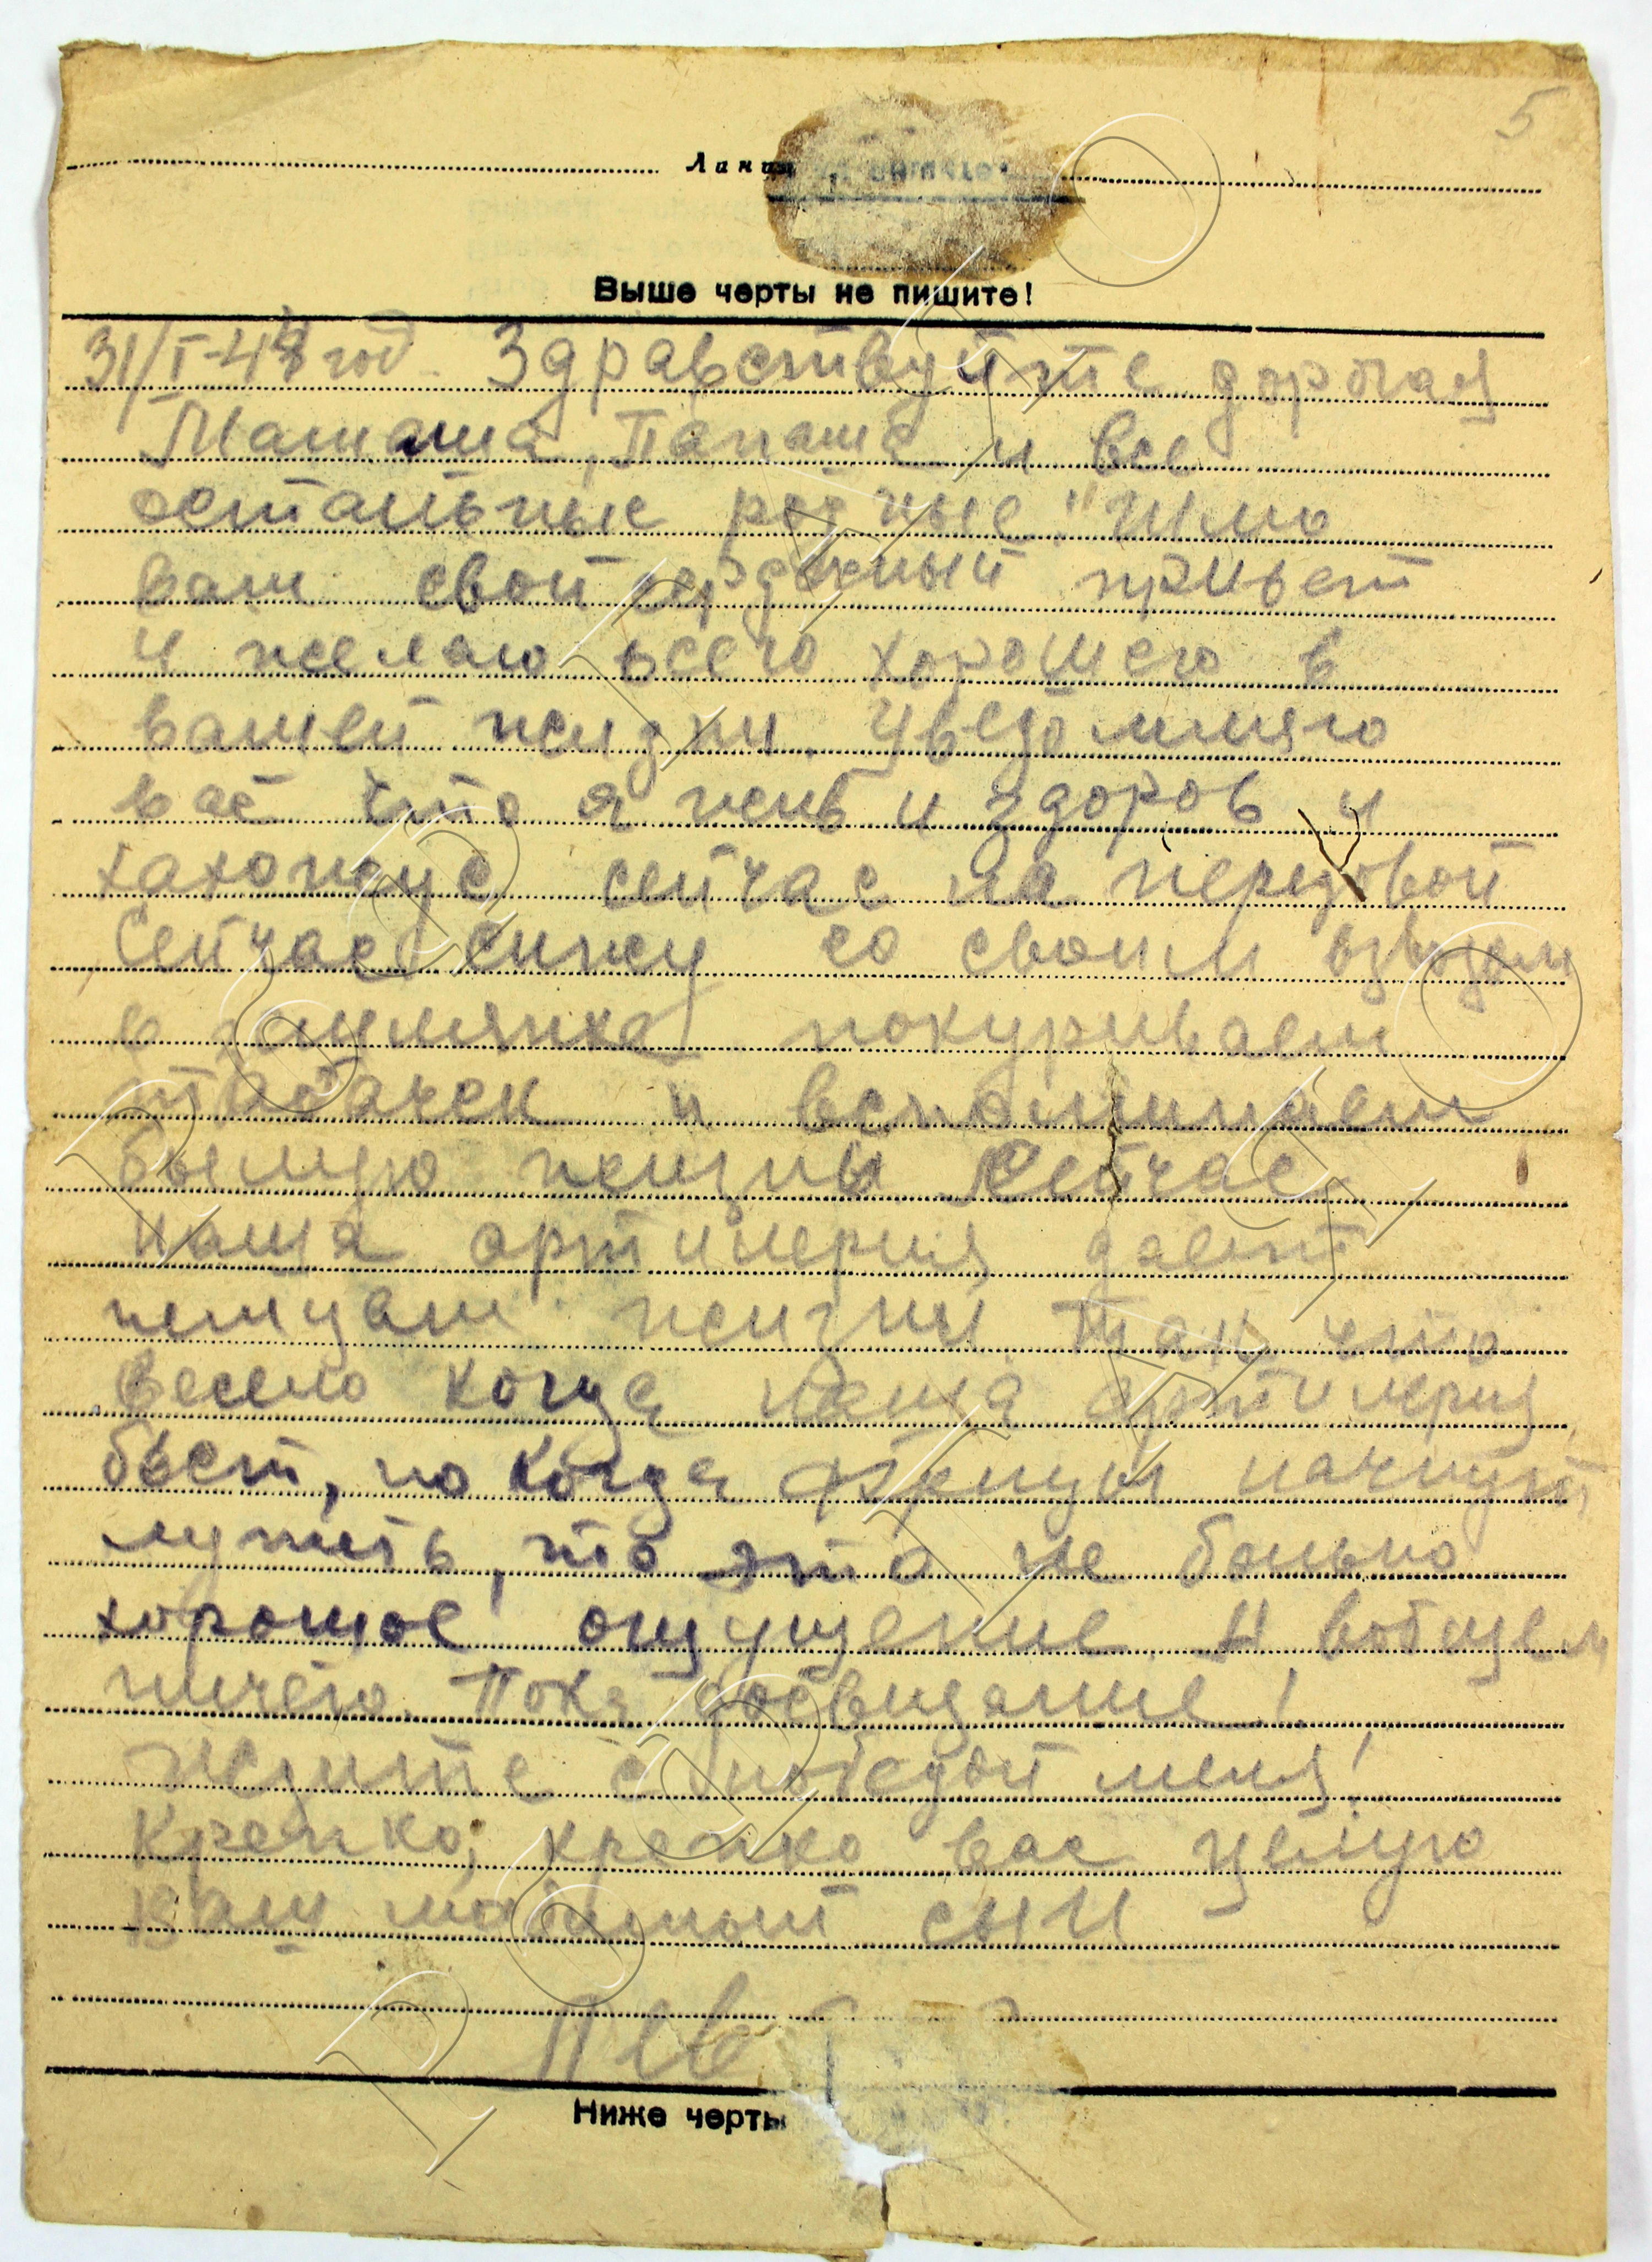 5
Линия
Выше черты не пишите!
31/I-44 год. Здравствуйте дорогая
Мамаша, Папаша и все
остальные родные." Шлю
вам свой сердечный привет
и желаю всего хорошего в
вашей жизни. Уведомляю
вас что я жив и здоров и
нахожус сейчас на передовой
Сейчас сижу со своим взводом
в землянке покуриваем
табачек и вспоминаем
былую жизнь Сейчас
наша артилерия дает
немцам жизни. Так что
весело когда наша артилерия
бьет, но когда фрицы начнут
лупить, то это не больно
хорошое ощущение. А вобщем
ничего. Пока досвидание!
Ждите с победой меня!
Крепко, крепко вас целую
Ваш любимый сын
Ниже черты